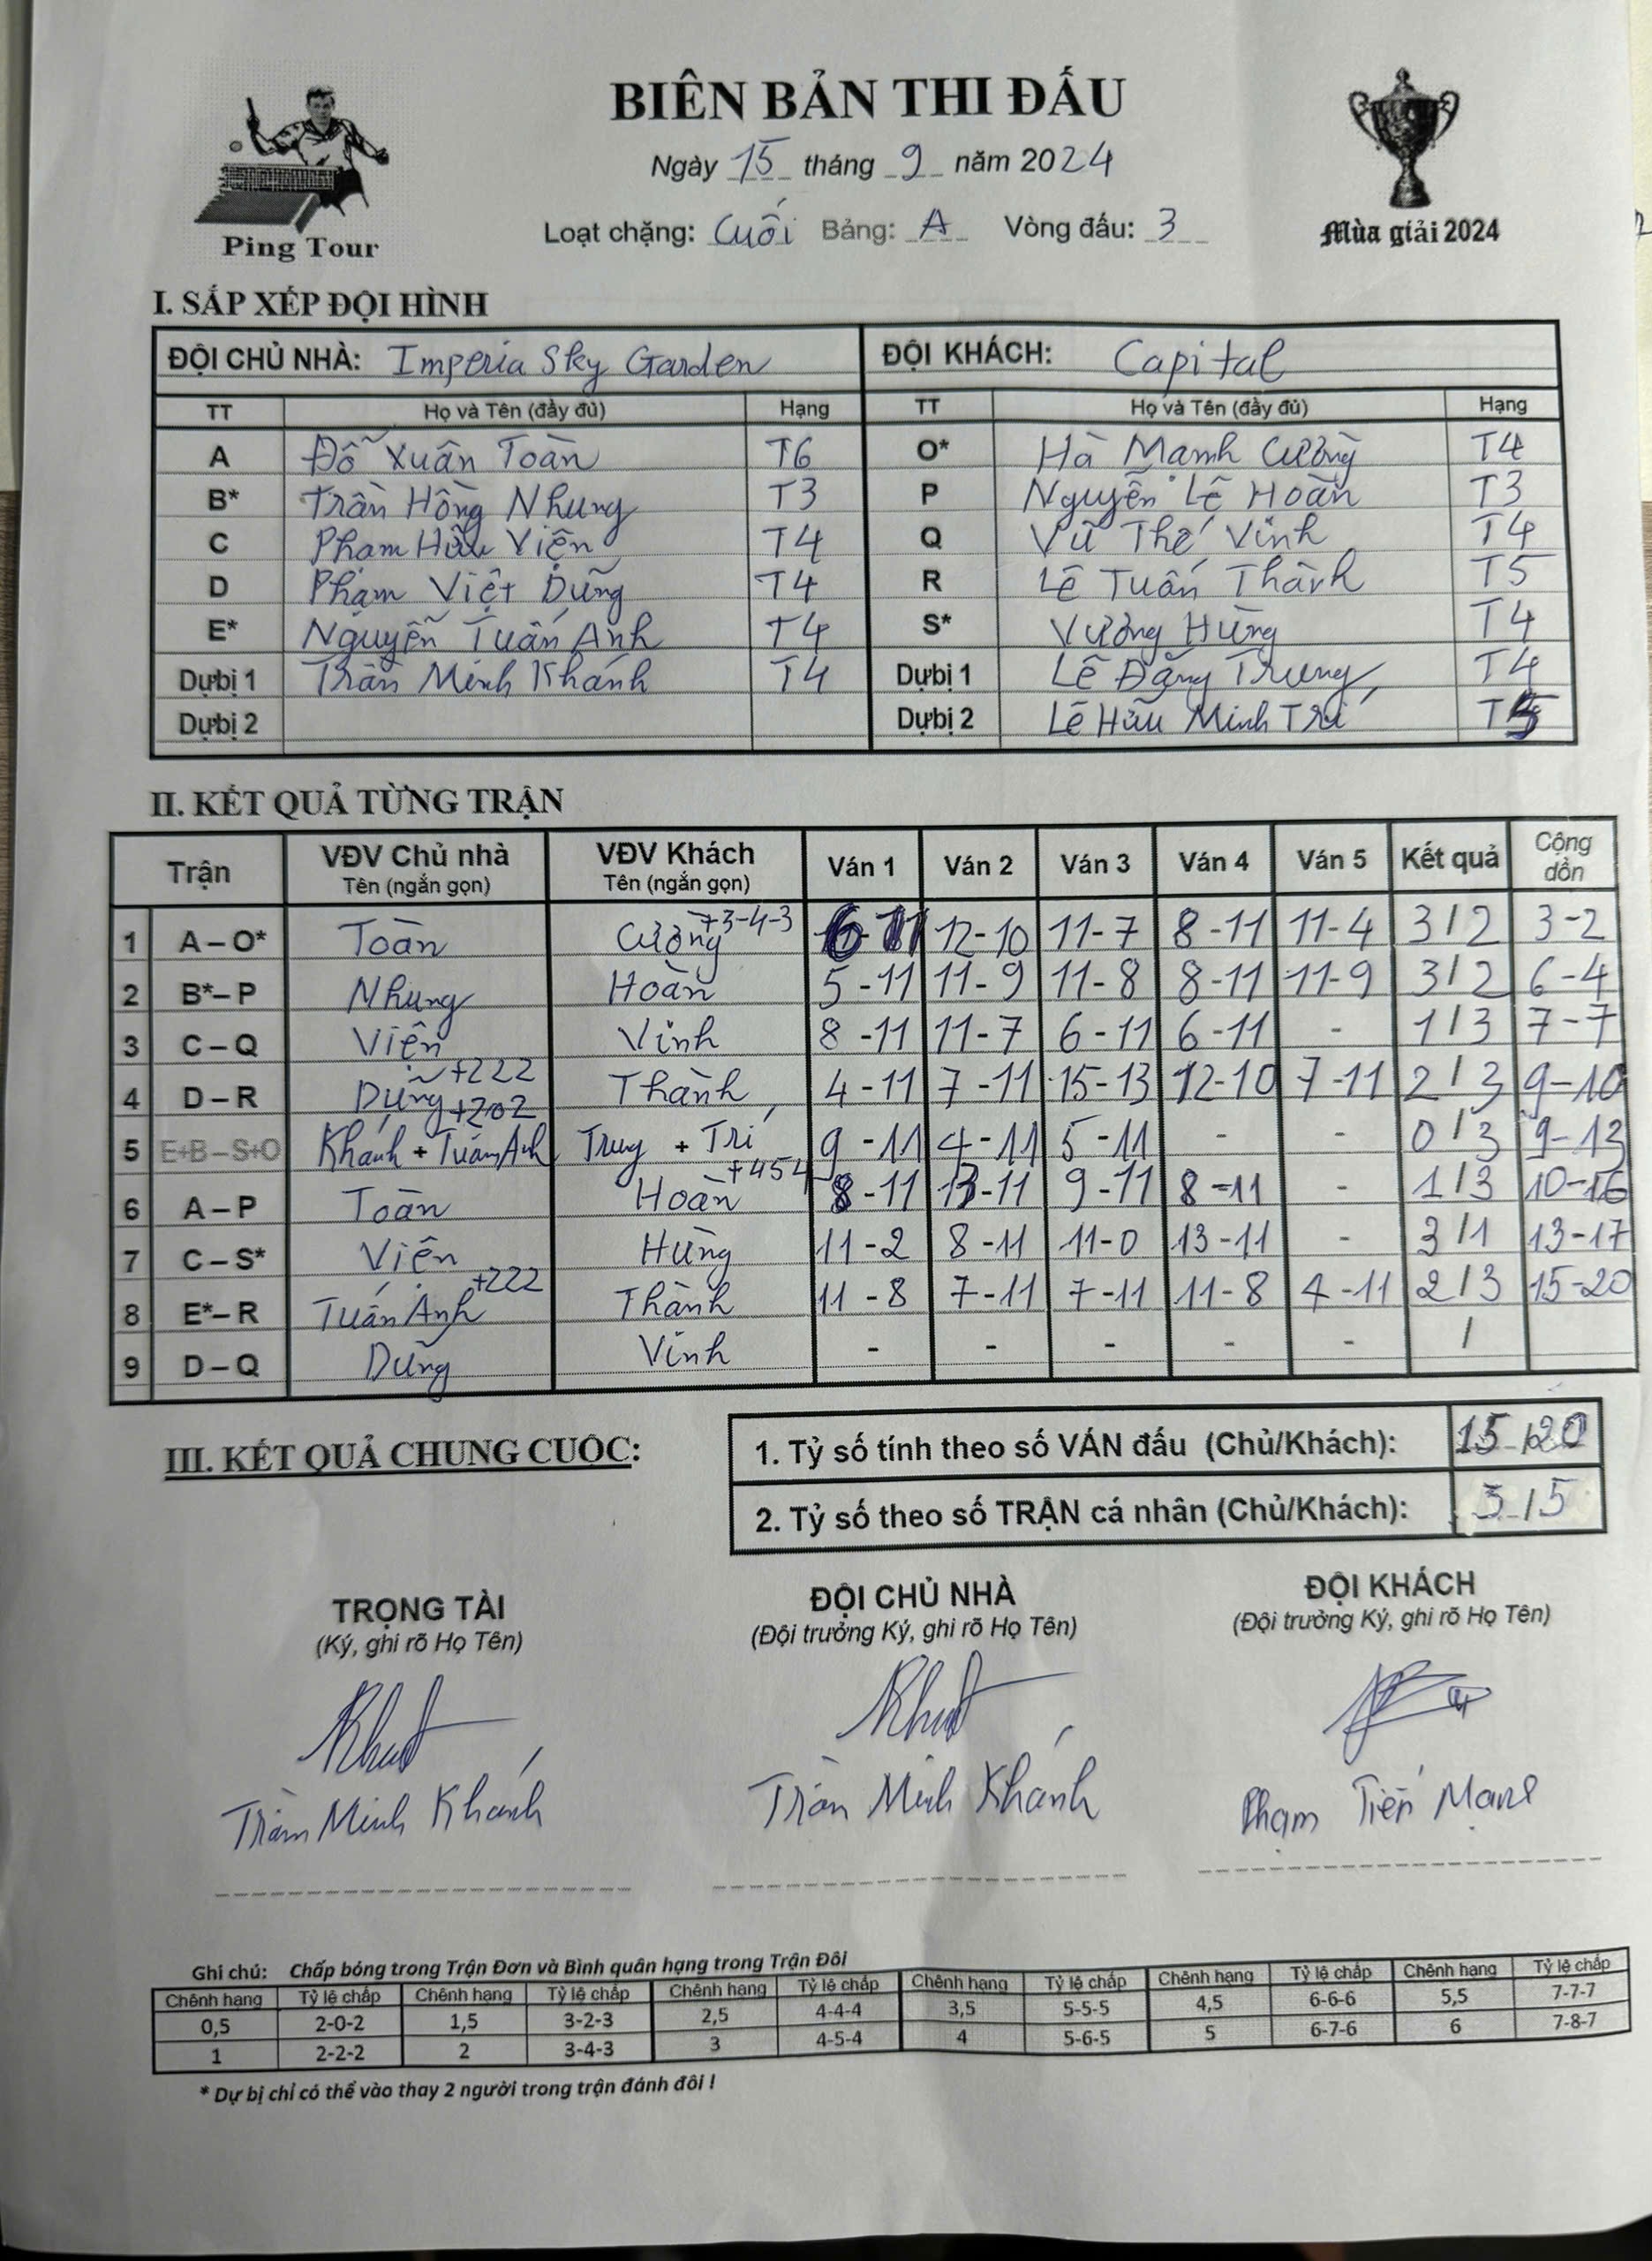 BIÊN BẢN THI ĐẤU
Ngày 15 tháng 9 năm 2024
Loạt chặng: Cuối Bảng: A Vòng đấu: 3
Ping Tour
Mùa giải 2024
I. SẮP XẾP ĐỘI HÌNH
ĐỘI CHỦ NHÀ: Imperia Sky Garden ĐỘI KHÁCH: Capital
TT Họ và Tên (đầy đủ) Hạng TT Họ và Tên (đầy đủ) Hạng
A Đỗ Xuân Toàn T6 O* Hà Mạnh Cường T4
B* Trần Hồng Nhung T3 P Nguyễn Lê Hoàn T3
C Phạm Hữu Viện T4 Q Vũ Thế Vinh T4
D Phạm Việt Dũng T4 R Lê Tuấn Thành T5
E* Nguyễn Tuấn Anh T4 S* Vương Hùng T4
Dự bị 1 Trần Minh Khánh T4 Dự bị 1 Lê Đặng Trung T4
Dự bị 2 Dự bị 2 Lê Hữu Minh Trí T5
II. KẾT QUẢ TỪNG TRẬN
Trận VĐV Chủ nhà VĐV Khách Ván 1 Ván 2 Ván 3 Ván 4 Ván 5 Kết quả Cộng dồn
Tên (ngắn gọn) Tên (ngắn gọn)
1 A – O* Toàn Cường +3-4-3 6-11 12-10 11-7 8-11 11-4 3/2 3-2
2 B*– P Nhung Hoàn 5-11 11-9 11-8 8-11 11-9 3/2 6-4
3 C – Q Viện Vinh 8-11 11-7 6-11 6-11 - 1/3 7-7
4 D – R Dũng +222 Thành 4-11 7-11 15-13 12-10 7-11 2/3 9-10
5 E+B – S+O Khánh + Tuấn Anh +202 Trung + Trí 9-11 4-11 5-11 - - 0/3 9-13
6 A – P Toàn Hoàn +454 8-11 13-11 9-11 8-11 - 1/3 10-16
7 C – S* Viện Hùng 11-2 8-11 11-0 13-11 - 3/1 13-17
8 E*– R Tuấn Anh +222 Thành 11-8 7-11 7-11 11-8 4-11 2/3 15-20
9 D – Q Dũng Vinh - - - - - /
III. KẾT QUẢ CHUNG CUỘC:
1. Tỷ số tính theo số VÁN đấu (Chủ/Khách): 15/20
2. Tỷ số theo số TRẬN cá nhân (Chủ/Khách): 3/5
TRỌNG TÀI ĐỘI CHỦ NHÀ ĐỘI KHÁCH
(Ký, ghi rõ Họ Tên) (Đội trưởng Ký, ghi rõ Họ Tên) (Đội trưởng Ký, ghi rõ Họ Tên)
Trần Minh Khánh Trần Minh Khánh Phạm Tiến Mạnh
Ghi chú: Chấp bóng trong Trận Đơn và Bình quân hạng trong Trận Đôi
Chênh hạng Tỷ lệ chấp Chênh hạng Tỷ lệ chấp Chênh hạng Tỷ lệ chấp Chênh hạng Tỷ lệ chấp Chênh hạng Tỷ lệ chấp Chênh hạng Tỷ lệ chấp
0,5 2-0-2 1,5 3-2-3 2,5 4-4-4 3,5 5-5-5 4,5 6-6-6 5,5 7-7-7
1 2-2-2 2 3-4-3 3 4-5-4 4 5-6-5 5 6-7-6 6 7-8-7
* Dự bị chỉ có thể vào thay 2 người trong trận đánh đôi !